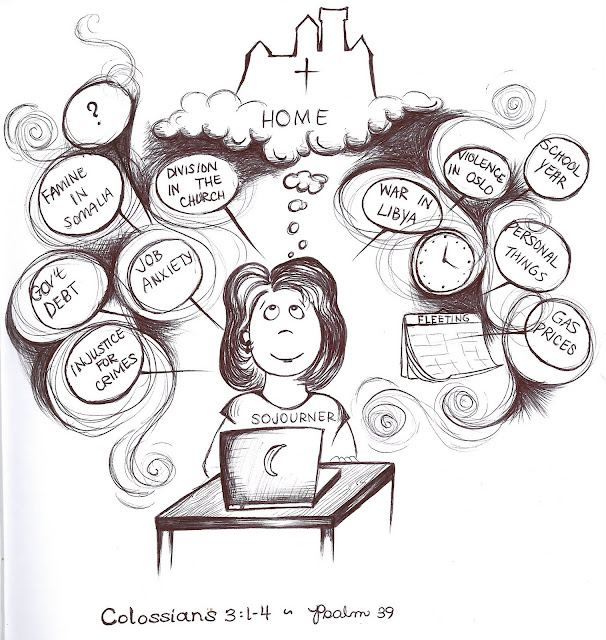 HOME
?
FAMINE
IN
SOMALIA
DIVISION
IN THE
CHURCH
GOV'T
DEBT
JOB
ANXIETY
INJUSTICE
FOR
CRIMES
WAR IN
LIBYA
VIOLENCE
IN OSLO
SCHOOL
YEAR
PERSONAL
THINGS
FLEETING
GAS
PRICES
SOJOURNER
Colossians 3:1-4 ~ Psalm 39